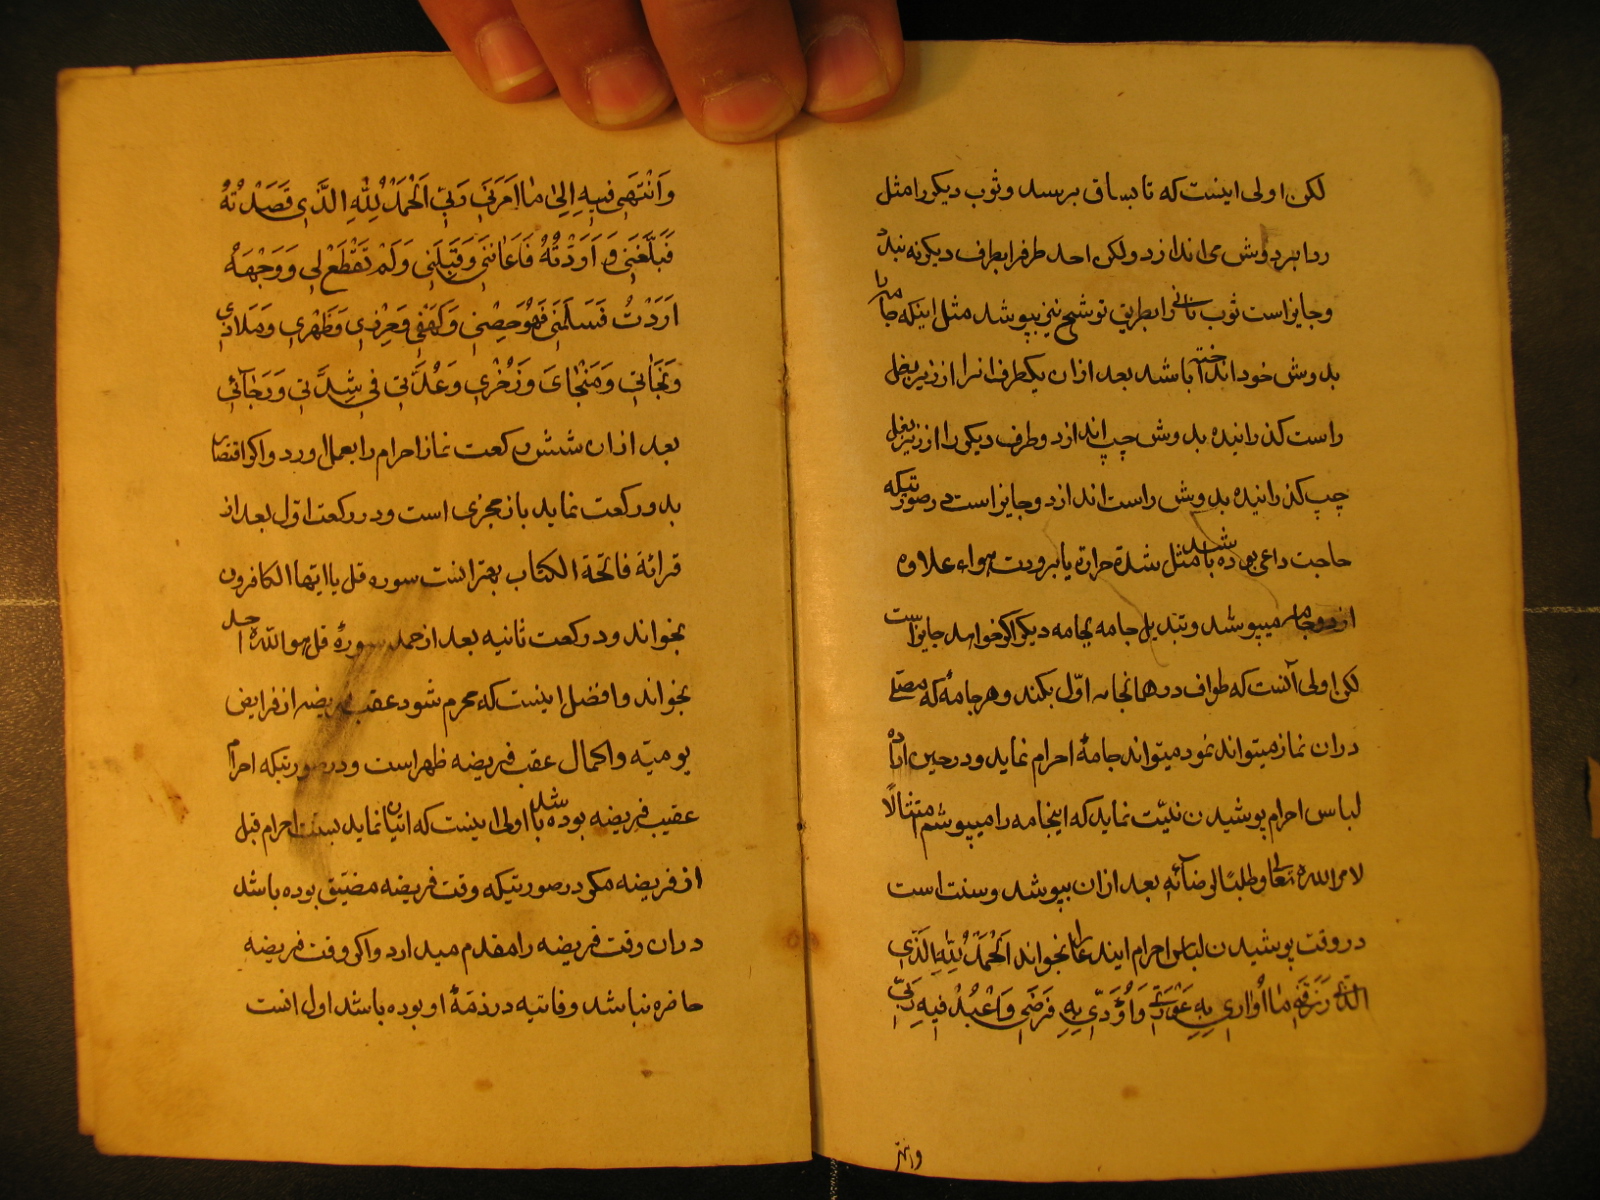 لکن اولی اینست که تا بساق برسد وثوب دیکر را مثل
ردا بر دوش می اندازد ولکن احد طرفرا بطرف دیکر نه بندد
وجایز است ثوب ثانی را بطریق توشح نیز بپوشد مثل اینکه جامه را
بدوش خود انداخته باشد بعد از ان یکطرف انرا از زیر بغل
راست کذرانیده بدوش چپ اندازد وطرف دیکر را از زیر بغل
چپ کذرانیده بدوش راست اندازد وجایز است در صورتیکه
حاجت داعی بوده باشد مثل شدة حرارة یا برودت هواء علاوه
از دو جامه میپوشد وتبدیل جامه بجامه دیکر اکر خواهد جایز است
لکن اولی آنست که طواف در همانجامه اوّل بکند وهر جامهٔ که مصلّی
در ان نماز میتواند نمود میتواند جامهٔ احرام نماید ودر حین اراده
لباس احرام پوشیدن نیّت نماید که اینجامه را میپوشم امتثالًا
لامر الله تعالی وطلبًا لرضائه بعد از ان بپوشد وسنت است
در وقت پوشیدن لباس احرام ایندعا را بخواند اَلْحَمْدُ لِلّٰهِ الَّذی
رَزَقَنی مٰا اُوٰاری بِهِ عَوْرَتی وَاُؤَدّی بِهِ فَرَضی وَاَعْبُدُ فیهِ رَبّی
وانتهی
وَاَنْتَهی فیهِ اِلیٰ مٰا اَمَرَنی رَبّی اَلْحَمْدُ لِلّٰهِ الَّذی قَصَدْتُهُ
فَبَلَّغَنی وَاَرَدْتُهُ فَاَعٰانَنی وَقَبِلَنی وَلَمْ تَقْطَعْ لی وَوَجْهَهُ
اَرَدْتُ فَسَلَّمَنی فَهُوَ حِصْنی وَکَهْفی وَحِرْزی وَظَهْری وَمَلاذی
وَنَجٰاتی وَمَنْجٰایَ وَذُخْری وَعُدَّتی فی شِدَّتی وَرَخٰائی
بعد از ان شش رکعت نماز احرام را بعمل اورد واکر اقتصار
بدو رکعت نماید باز مجزی است ودر رکعت اوّل بعد از
قرائة فاتحة الکتاب بهتر انست سوره قل یا ایها الکافرون
بخواند ودر رکعت ثانیه بعد از حمد سورهٔ قل هو الله احد
بخواند وافضل اینست که محرم شود عقب فریضه از فرایض
یومیّه واکمال عقب فریضه ظهر است ودر صورتیکه احرام
عقیب فریضه بوده باشد اولی اینست که اتیان نماید بسنت احرام قبل
از فریضه مکر در صورتیکه وقت فریضه مضیّق بوده باشد
در ان وقت فریضه را مقدم میدارد واکر وقت فریضه
حاضره نباشد وفاتیه در ذمّهٔ او بوده باشد اول انست